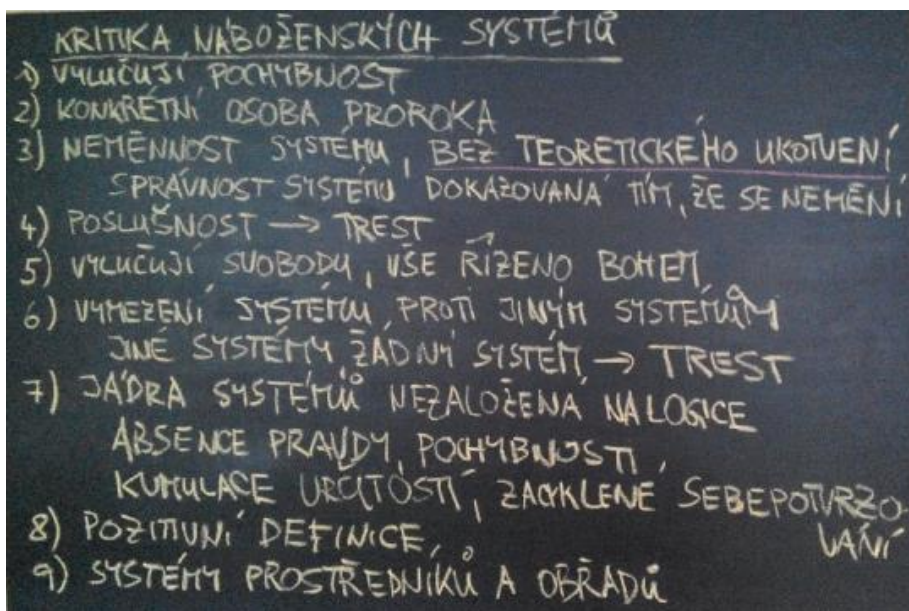 KRITIKA NÁBOŽENSKÝCH SYSTÉMŮ
1) VYLUČUJÍ POCHYBNOST
2) KONKRÉTNÍ OSOBA PROROKA
3) NEMĚNNOST SYSTÉMU, BEZ TEORETICKÉHO UKOTVENÍ
SPRÁVNOST SYSTÉMU DOKAZOVANÁ TÍM, ŽE SE NEMĚNÍ
4) POSLUŠNOST → TREST
5) VYLUČUJÍ SVOBODU, VŠE ŘÍZENO BOHEM
6) VYMEZENÍ SYSTÉMU PROTI JINÝM SYSTÉMŮM
JINÉ SYSTÉMY, ŽÁDNÝ SYSTÉM → TREST
7) JÁDRA SYSTÉMŮ NEZALOŽENÁ NA LOGICE
ABSENCE PRAVDY, POCHYBNOSTI,
KUMULACE URČITOSTÍ, ZACYKLENÉ SEBEPOTVRZO-
VÁNÍ
8) POZITIVNÍ DEFINICE,
9) SYSTÉMY PROSTŘEDNÍKŮ A OBŘADŮ